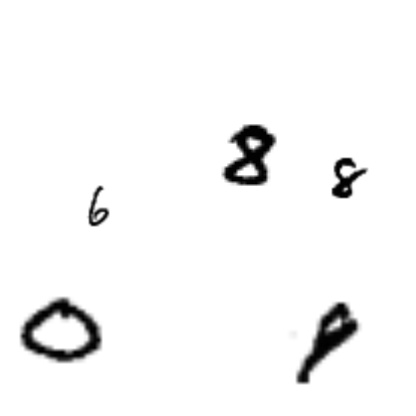 8 8
6
0